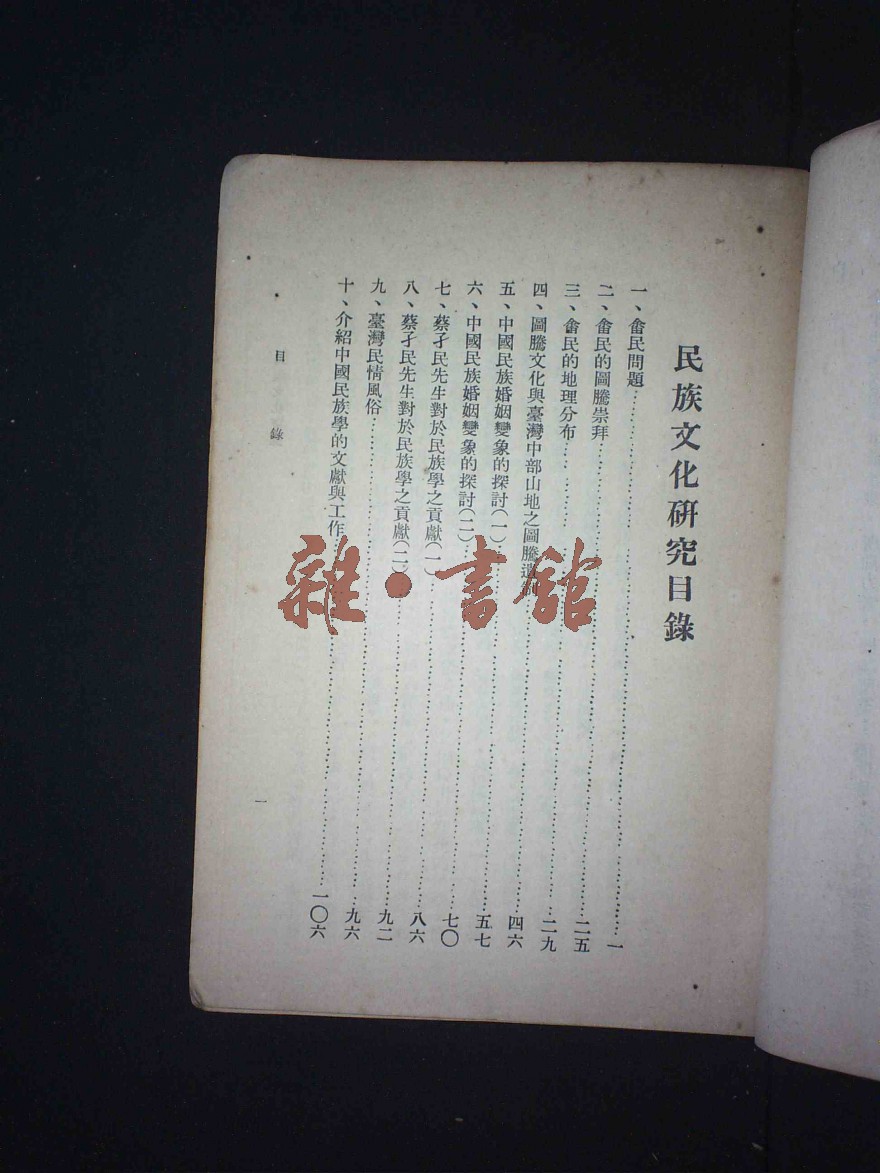 民族文化研究目錄
一、畲民問題……一
二、畲民的圖騰崇拜……二五
三、畲民的地理分布……二九
四、圖騰文化與臺灣中部山地之圖騰遺制……四六
五、中國民族婚姻變象的探討(一)……五七
六、中國民族婚姻變象的探討(二)……七〇
七、蔡孑民先生對於民族學之貢獻(一)……八六
八、蔡孑民先生對於民族學之貢獻(二)……九二
九、臺灣民情風俗……九六
十、介紹中國民族學的文獻與工作……一〇六
目錄
一
雜·書館